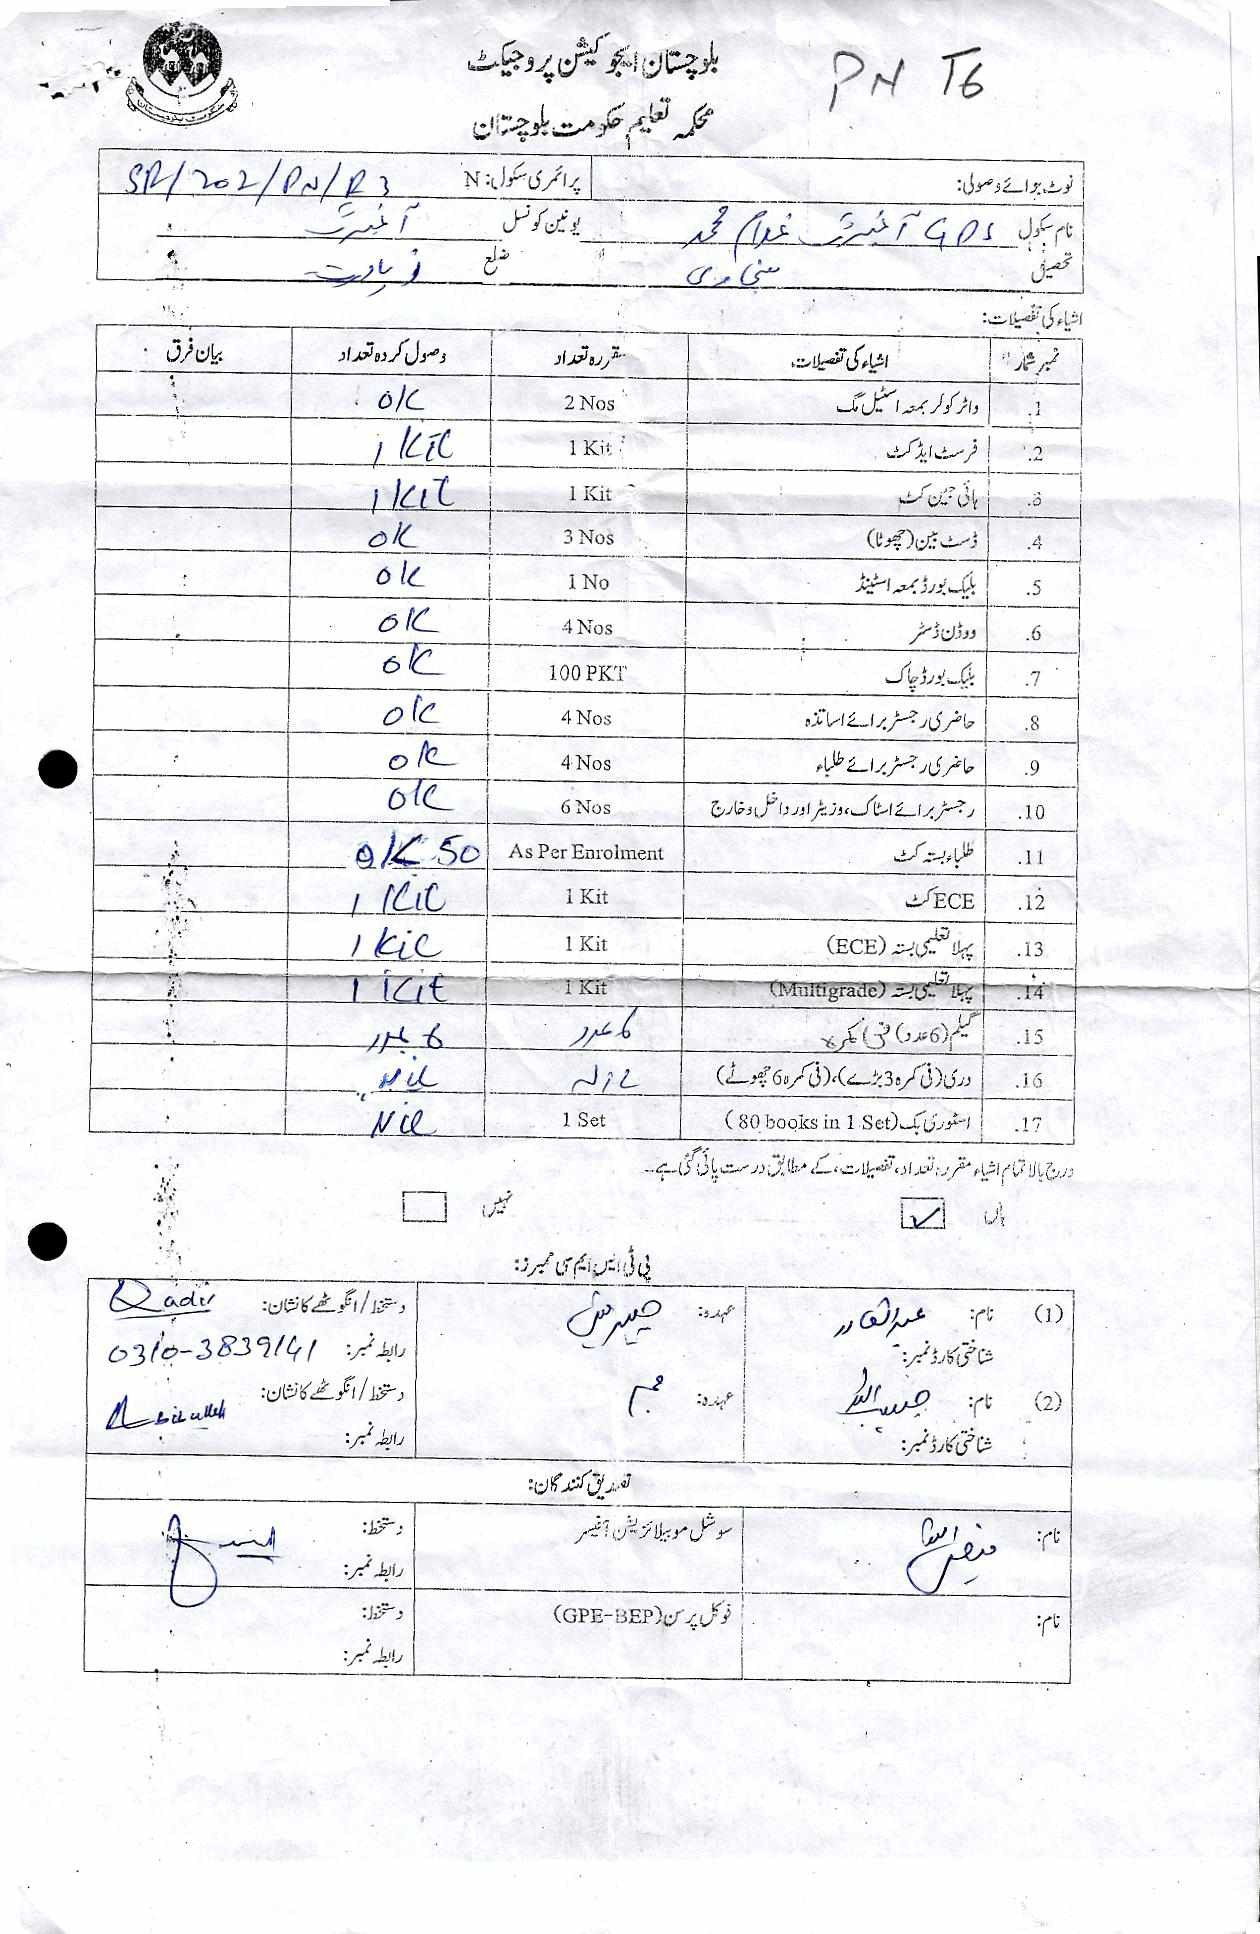 PN T6
بلوچستان ایجوکیشن پروجیکٹ
محکمہ تعلیم حکومت بلوچستان
نوٹ برائے وصولی: پرائمری سکول: N SR/202/PN/R3
نام سکول GPS آغبرگ غلام محمد یونین کونسل آغبرگ
تحصیل سنجاوی ضلع زیارت
اشیاء کی تفصیلات:
نمبر شمار اشیاء کی تفصیلات مقررہ تعداد وصول کردہ تعداد بیان فرق
1. واٹر کولر بمعہ اسٹیل مگ 2 Nos OK
2. فرسٹ ایڈ کٹ 1 Kit 1 Kit
3. ہائی جین کٹ 1 Kit 1 Kit
4. ڈسٹ بین (چھوٹا) 3 Nos OK
5. بلیک بورڈ بمعہ اسٹینڈ 1 No OK
6. ووڈن ڈسٹر 4 Nos OK
7. بلیک بورڈ چاک 100 PKT OK
8. حاضری رجسٹر برائے اساتذہ 4 Nos OK
9. حاضری رجسٹر برائے طلباء 4 Nos OK
10. رجسٹر برائے اسٹاک، وزیٹر اور داخل وخارج 6 Nos OK
11. طلباء بستہ کٹ As Per Enrolment OK 50
12. ECE کٹ 1 Kit 1 Kit
13. پہلا تعلیمی بستہ (ECE) 1 Kit 1 Kit
14. پہلا تعلیمی بستہ (Multigrade) 1 Kit 1 Kit
15. گیلم (6 عدد) فی کمرہ 6 عدد 6 عدد
16. دری (فی کمرہ 3 بڑے)، (فی کمرہ 6 چھوٹے) Nil
17. اسٹوری بک (80 books in 1 Set) 1 Set Nil
درج بالا تمام اشیاء مقررہ تعداد، تفصیلات، کے مطابق درست پائی گئی ہے۔
ہاں ✓ نہیں
پی ٹی ایس ایم سی ممبرز:
(1) نام: عبدالقادر عہدہ: چیئرمین دستخط/انگوٹھے کا نشان: Qadir
شناختی کارڈ نمبر: رابطہ نمبر: 0310-3839141
(2) نام: حبیب اللہ عہدہ: ممبر دستخط/انگوٹھے کا نشان:
شناختی کارڈ نمبر: رابطہ نمبر:
تصدیق کنندگان:
نام: فیض اللہ سوشل موبیلائزیشن آفیسر دستخط:
رابطہ نمبر:
نام: فوکل پرسن (GPE-BEP) دستخط:
رابطہ نمبر: